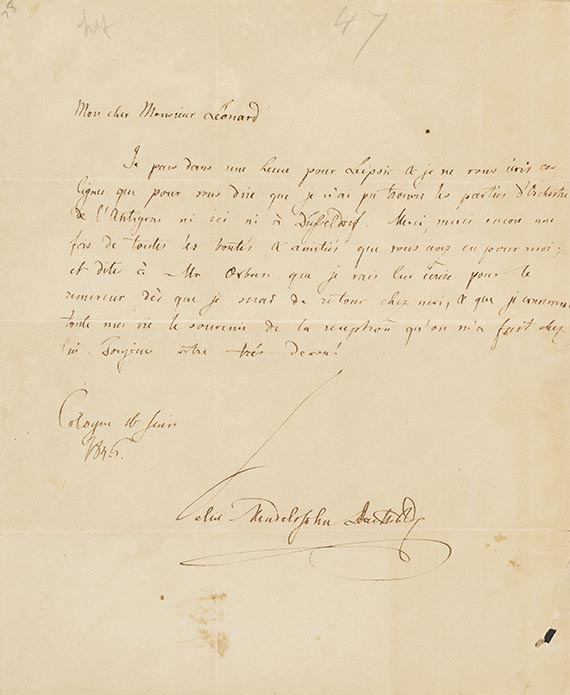 47
Mon cher Monsieur Léonard
Je pars dans une heure pour Leipsic & je ne vous écris ces
lignes que pour vous dire que je n'ai pu trouver les parties d'Orchestre
de l'Antigone ni ici ni à Düsseldorf. Merci, merci encore une
fois de toutes les bontés & amitiés que vous avez eu pour moi;
et dites à Mr que je vais lui écrire pour le
remercier dès que je serai de retour chez moi, & que je conserverai
toute ma vie le souvenir de la réception qu'on m'a fait chez
lui. Toujours votre très devoué
Cologne 16 Juin
1846.
Felix Mendelssohn Bartholdy